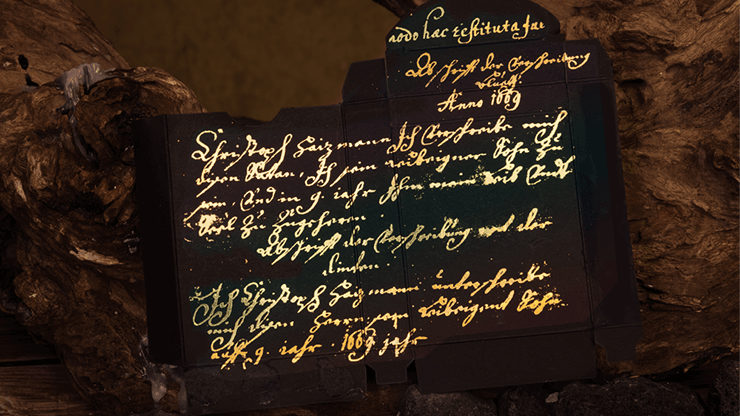 hac restituta
Abschrifft der Verschreibung
Anno 1669
Christoph Haizmann Ich Verschreibe mich
disen Satan, Ich sein leibeigner Sohn Zu
sein, Und in 9. iahr Ihm mein leib Undt
Seel Zu Zugeheren.
Abschrifft der Verschreibung mit der
dinden.
Ich Christoph Haizmann unterschreibe
mich disen Herrn sein leibeigent Sohn
auff 9. iahr. 1669 jahr